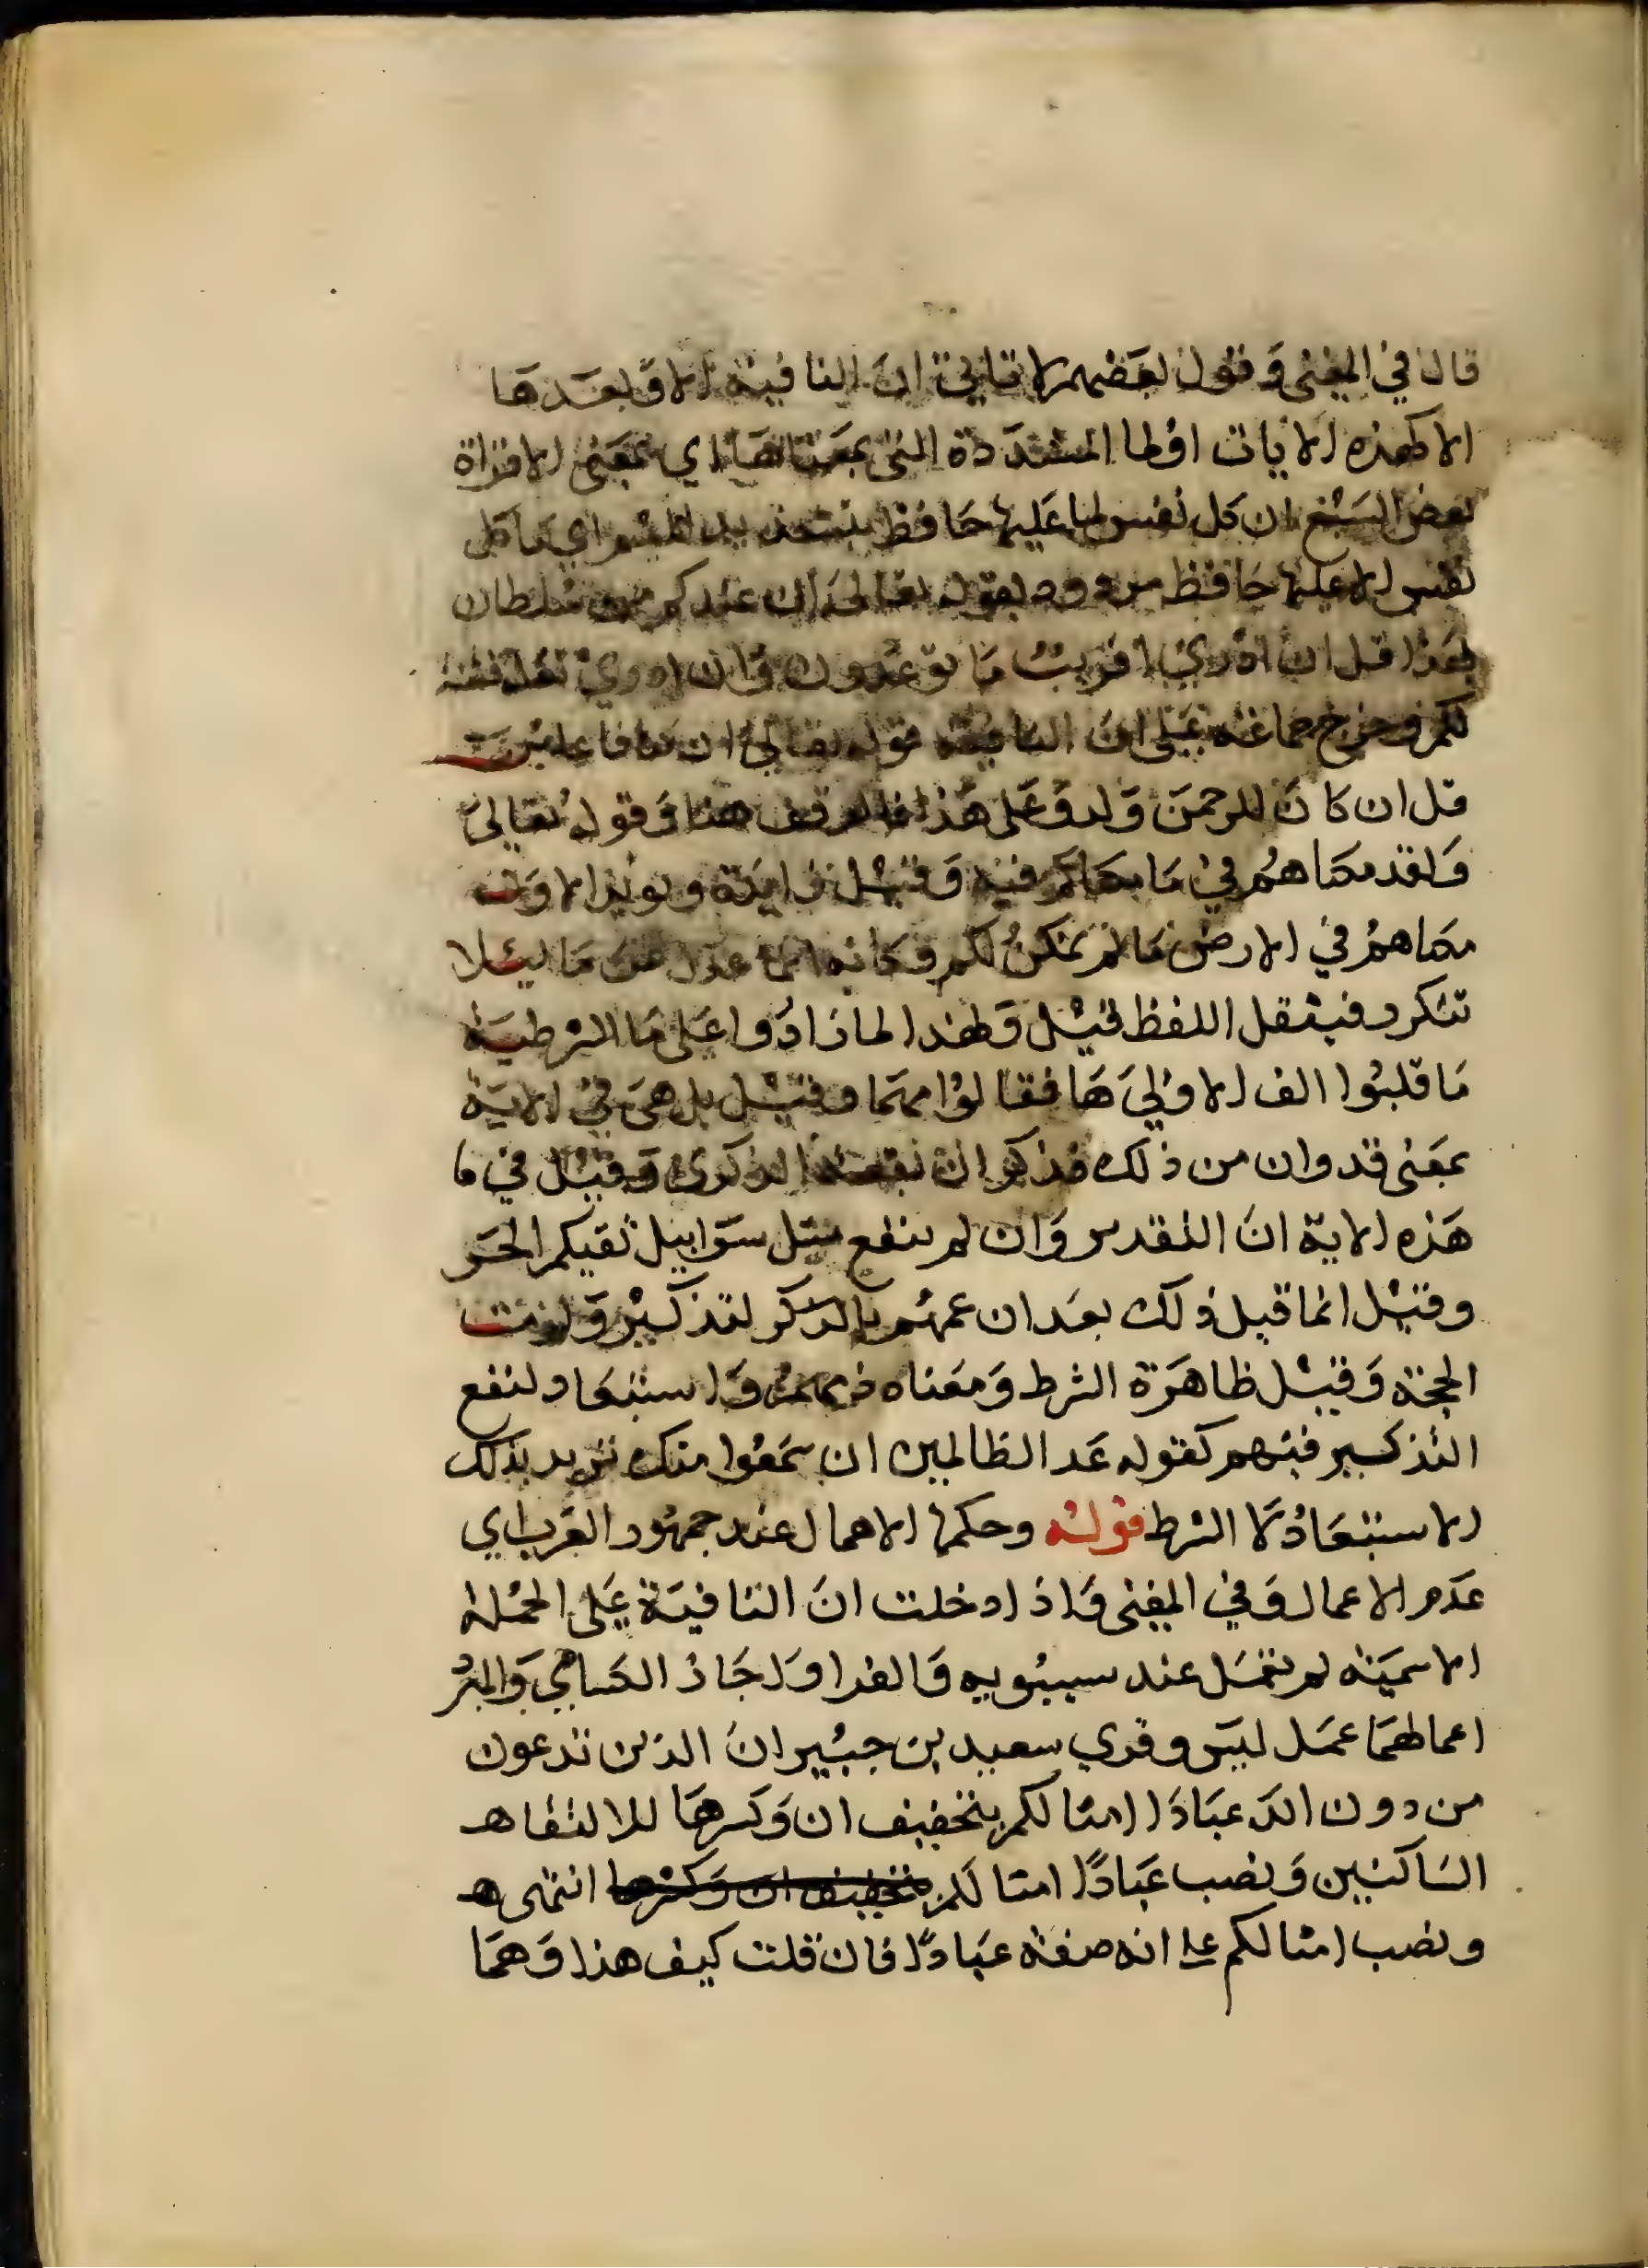 قال في المغنى وقول بعضهم لا تاتي ان النافية الا وبعدها
الا كهذه الايات اولما المشددة التى بمعناها اي بمعنى الا قراة
بعض السبع ان كل نفس لما عليها حافظ بتشديد الميم اي ما كل
نفس الا عليها حافظ مردود بقوله تعالى ان عندكم من سلطان
بهذا قل ان ادري اقريب ما توعدون وان ادري لعله فتنة
لكم وخرج جماعة على ان النافية قوله تعالى ان كنا فاعلين
قل ان كان للرحمن ولد وعلى هذا فالوقف هنا وقوله تعالى
ولقد مكناهم في ما مكناكم فيه وقيل زايدة ويويد الاول
مكناهم في الارض ما لم نمكن لكم وكانه انما عدل عن ما ليلا
تتكرر فيثقل اللفظ قيل ولهذا لما زادوا على ما الشرطية
ما قلبوا الف الاولى ها فقالوا مهما وقيل بل هي في الاية
بمعنى قد وان من ذلك فذكر ان نفعت الذكرى وقيل في ما
هذه الاية ان التقدير وان لم تنفع مثل سرابيل تقيكم الحر
وقيل انما قيل ذلك بعد ان عمهم بالذكر لتذكير ولزمت
الحجة وقيل ظاهرة الشرط ومعناه ذمهم واستبعاد لنفع
التذكير فيهم كقوله عد الظالمين ان سمعوا منك تريد بذلك
الاستبعاد لا الشرط قوله وحكمها الاهمال عند جمهور العرب اي
عدم الاعمال وفي المغنى واذا دخلت ان النافية على الجملة
الاسمية لم تعمل عند سيبويه والفرا واجاز الكسائي والمبرد
اعمالهما عمل ليس وقري سعيد بن جبير ان الذين تدعون
من دون الله عبادا امثالكم بتخفيف ان وكسرها للالتقاء
الساكنين ونصب عبادًا امثالكم بتخفيف ان وكسرها انتهى
ونصب امثالكم على انه صفة عبادًا فان قلت كيف هذا وهما